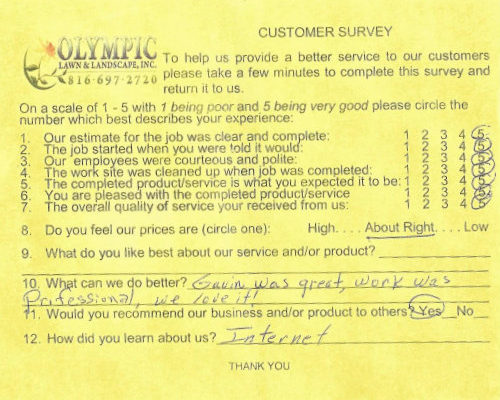 CUSTOMER SURVEY
OLYMPIC
LAWN & LANDSCAPE, INC.
816-697-2720
To help us provide a better service to our customers
please take a few minutes to complete this survey and
return it to us.
On a scale of 1 - 5 with 1 being poor and 5 being very good please circle the
number which best describes your experience:
1. Our estimate for the job was clear and complete: 1 2 3 4 5
2. The job started when you were told it would: 1 2 3 4 5
3. Our employees were courteous and polite: 1 2 3 4 5
4. The work site was cleaned up when job was completed: 1 2 3 4 5
5. The completed product/service is what you expected it to be: 1 2 3 4 5
6. You are pleased with the completed product/service 1 2 3 4 5
7. The overall quality of service your received from us: 1 2 3 4 5
8. Do you feel our prices are (circle one): High. . . . About Right. . . . Low
9. What do you like best about our service and/or product?
10. What can we do better? Gavin was great, work was
Professional, we love it!
11. Would you recommend our business and/or product to others? Yes__No__
12. How did you learn about us? Internet
THANK YOU